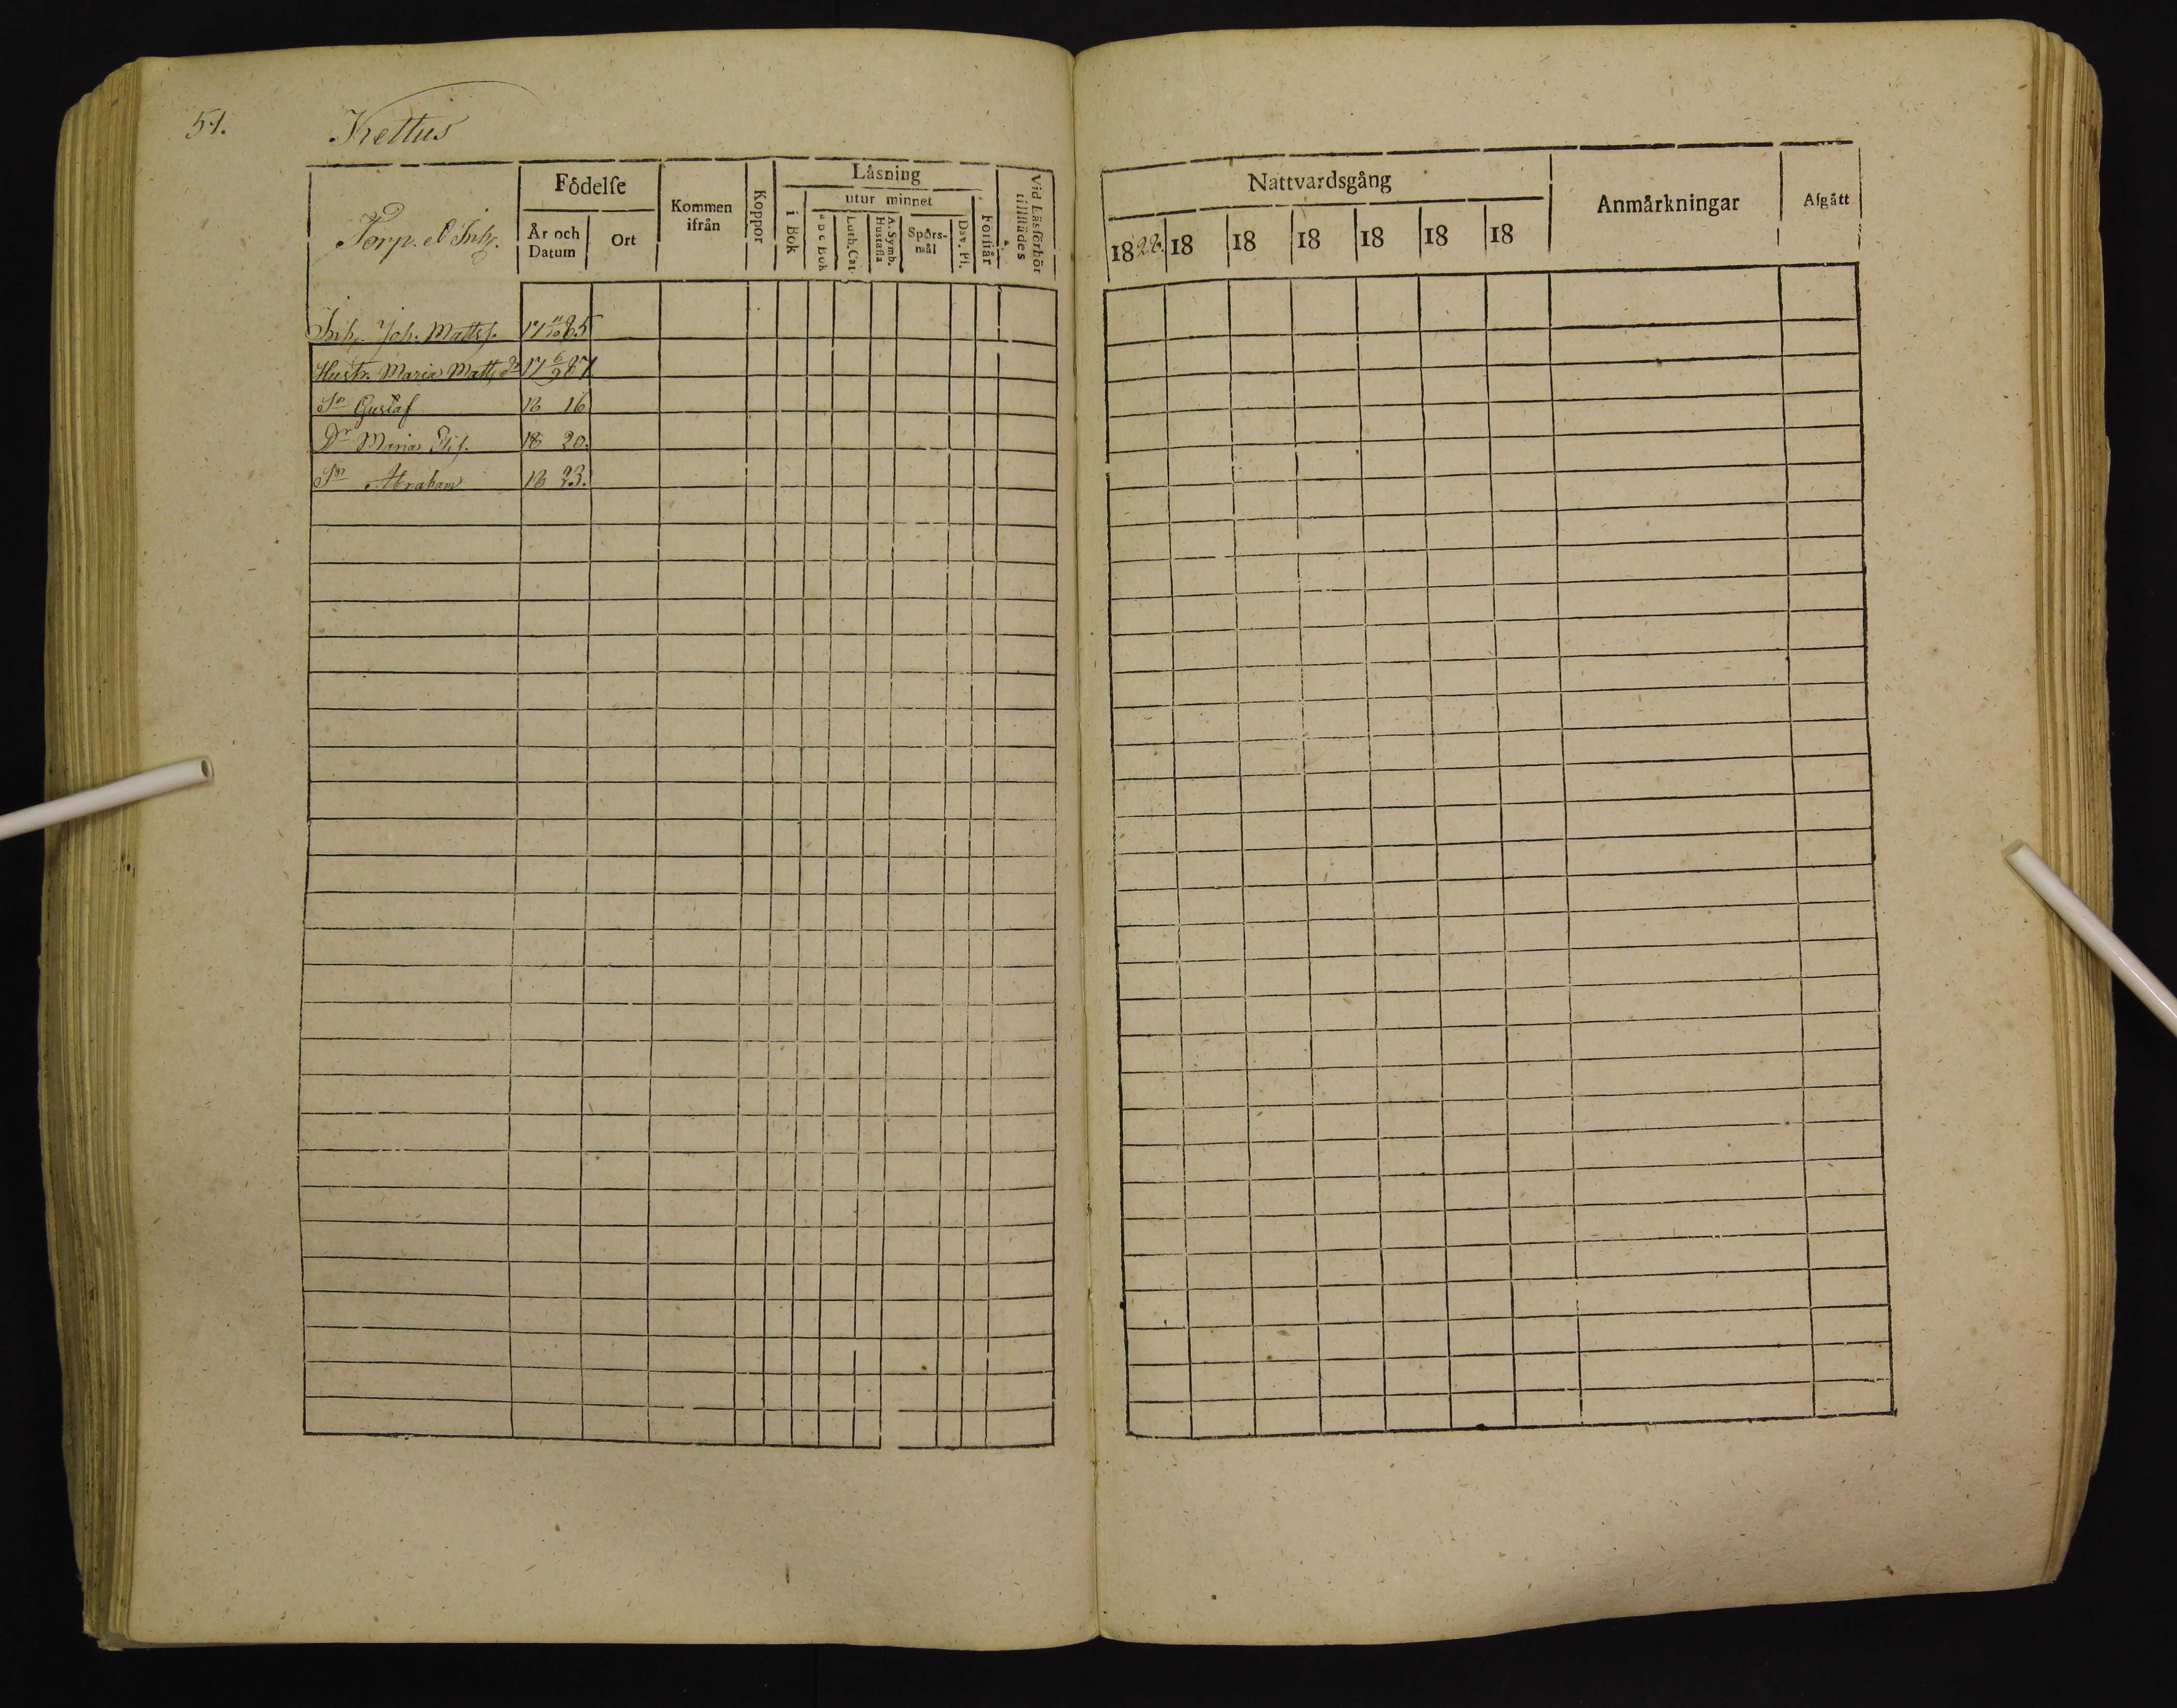 51.
Kettus
Torp. o Inh.
Födelse
År och Datum
Ort
Kommen ifrån
Koppor
Läsning
i Bok
utur minnet
a b c Bok
Luth. Cat.
A. Symb. Hustafla
Spörsmål
Dav. Ps.
Förstår
Vid Läsförhör tillstädes
Nattvardsgång
1822. 18 18 18 18 18 18
Anmärkningar
Afgått
Inh. Joh. Matts. 17 11/10 85
Hustr. Maria Matts dr 17 6/9 87
Sn Gustaf 18 16
Dr Maria Elis. 18 20.
Sn Abraham 18 23.